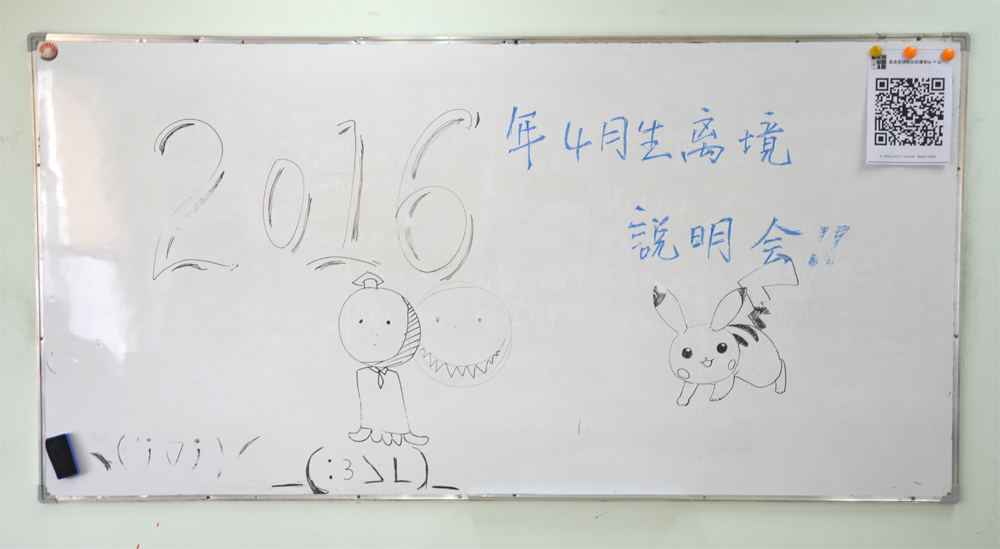 2016年4月生离境
説明会!!
ヽ(;▽;)ノ
_(:3」∠)_